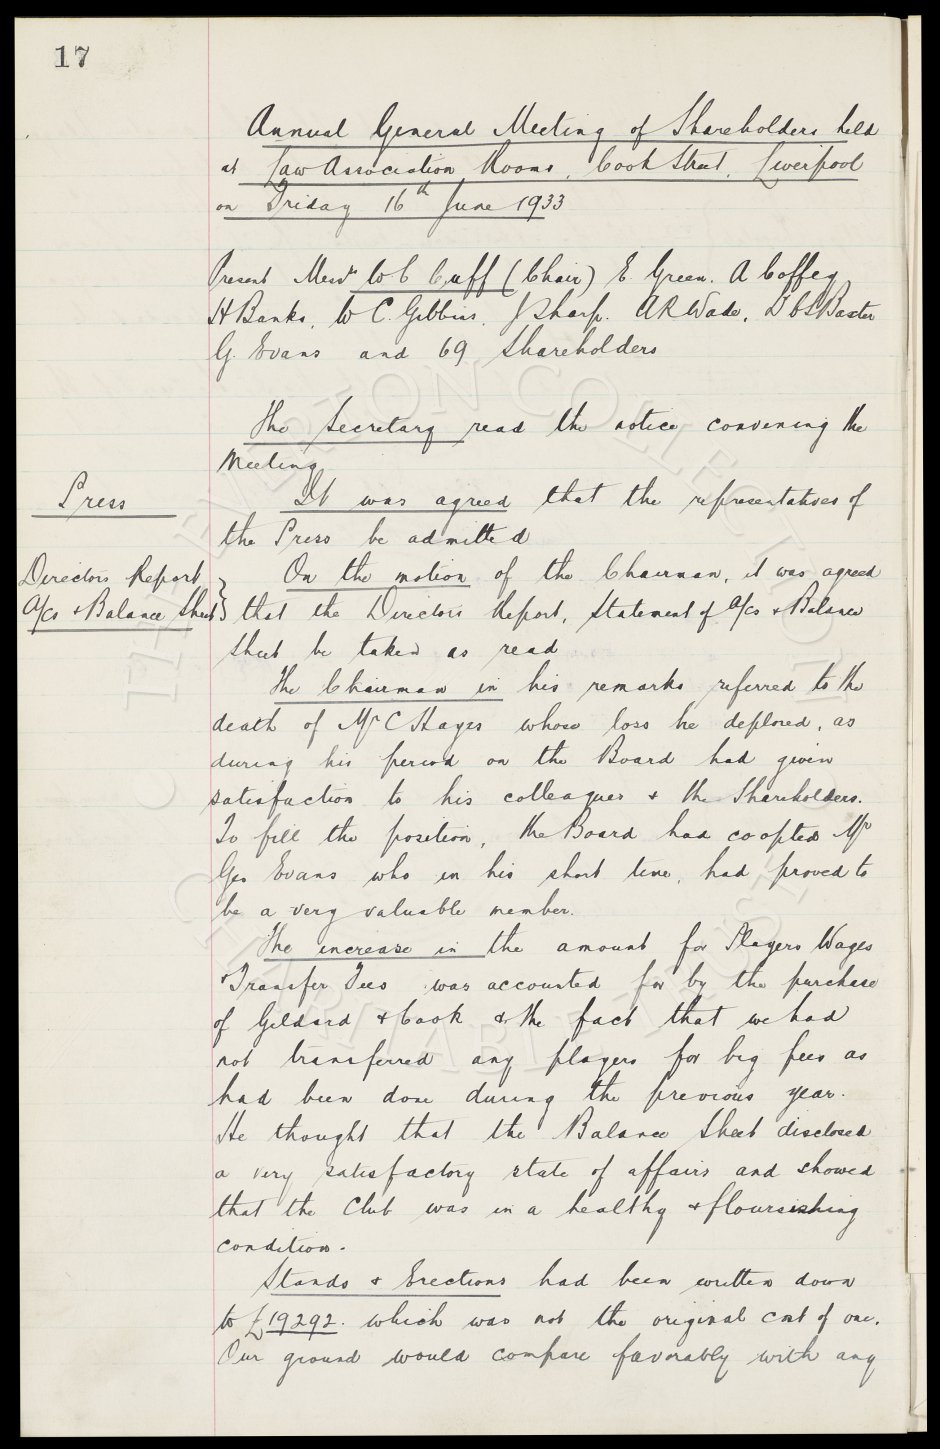 17
Annual General Meeting of Shareholders held
at Law Association Rooms, Cook Street, Liverpool
on Friday 16th June 1933
Present Messrs W C Cuff (Chair) E. Green. A Coffey
H Banks, W C. Gibbins, J Sharp. A R Wade, D C S Baxter
G. Evans and 69 Shareholders
The Secretary read the notice convening the
Meeting
Press
It was agreed that the representatives of
the Press be admitted
Directors Report
On the motion of the Chairman, it was agreed
A/cs & Balance Sheet
that the Directors Report, Statement of A/cs & Balance
Sheet be taken as read
The Chairman in his remarks referred to the
death of Mr C Hayes whose loss he deplored, as
during his period on the Board had given
satisfaction to his colleagues & the Shareholders.
To fill the position, the Board had coopted Mr
Geo Evans who in his short time, had proved to
be a very valuable member.
The increase in the amount for Players Wages
& Transfer Fees was accounted for by the purchase
of Geldard & Cook & the fact that we had
not transferred any players for big fees as
had been done during the previous year.
He thought that the Balance Sheet disclosed
a very satisfactory state of affairs and showed
that the Club was in a healthy & flourishing
condition.
Stands & Erections had been written down
to £19292. which was not the original cost of one.
Our ground would compare favorably with any
THE EVERTON COLLECTION
CHARITABLE TRUST